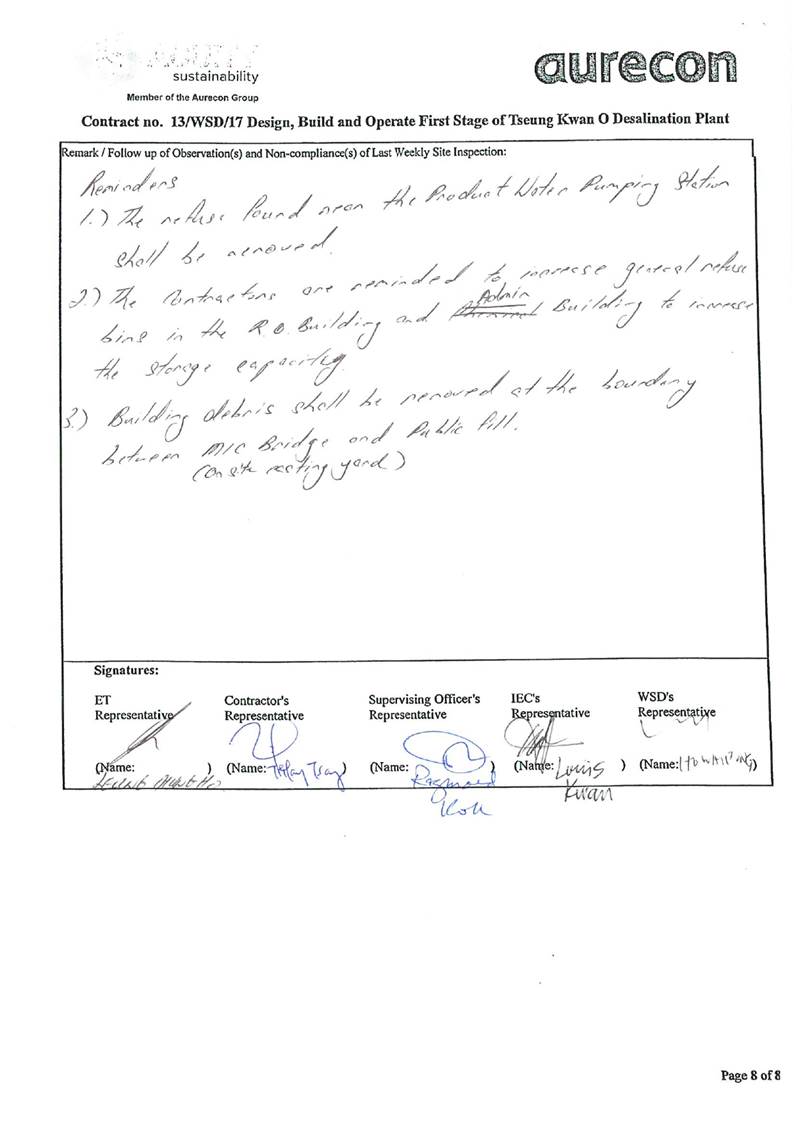 sustainability
aurecon
Member of the Aurecon Group
Contract no. 13/WSD/17 Design, Build and Operate First Stage of Tseung Kwan O Desalination Plant
Remark / Follow up of Observation(s) and Non-compliance(s) of Last Weekly Site Inspection:
Reminders
1.) The refuse found near the Product Water Pumping Station
shall be removed.
2.) The Contractors are reminded to increase general refuse
bins in the R.O. Building and Admin Building to increase
the storage capacity.
3.) Building debris shall be removed at the boundary
between MIC Bridge and Public fill.
(On site casting yard)
Signatures:
ET Contractor's Supervising Officer's IEC's WSD's
Representative Representative Representative Representative Representative
(Name: ) (Name: ) (Name: ) (Name: Louis ) (Name: )
Kwan
Page 8 of 8